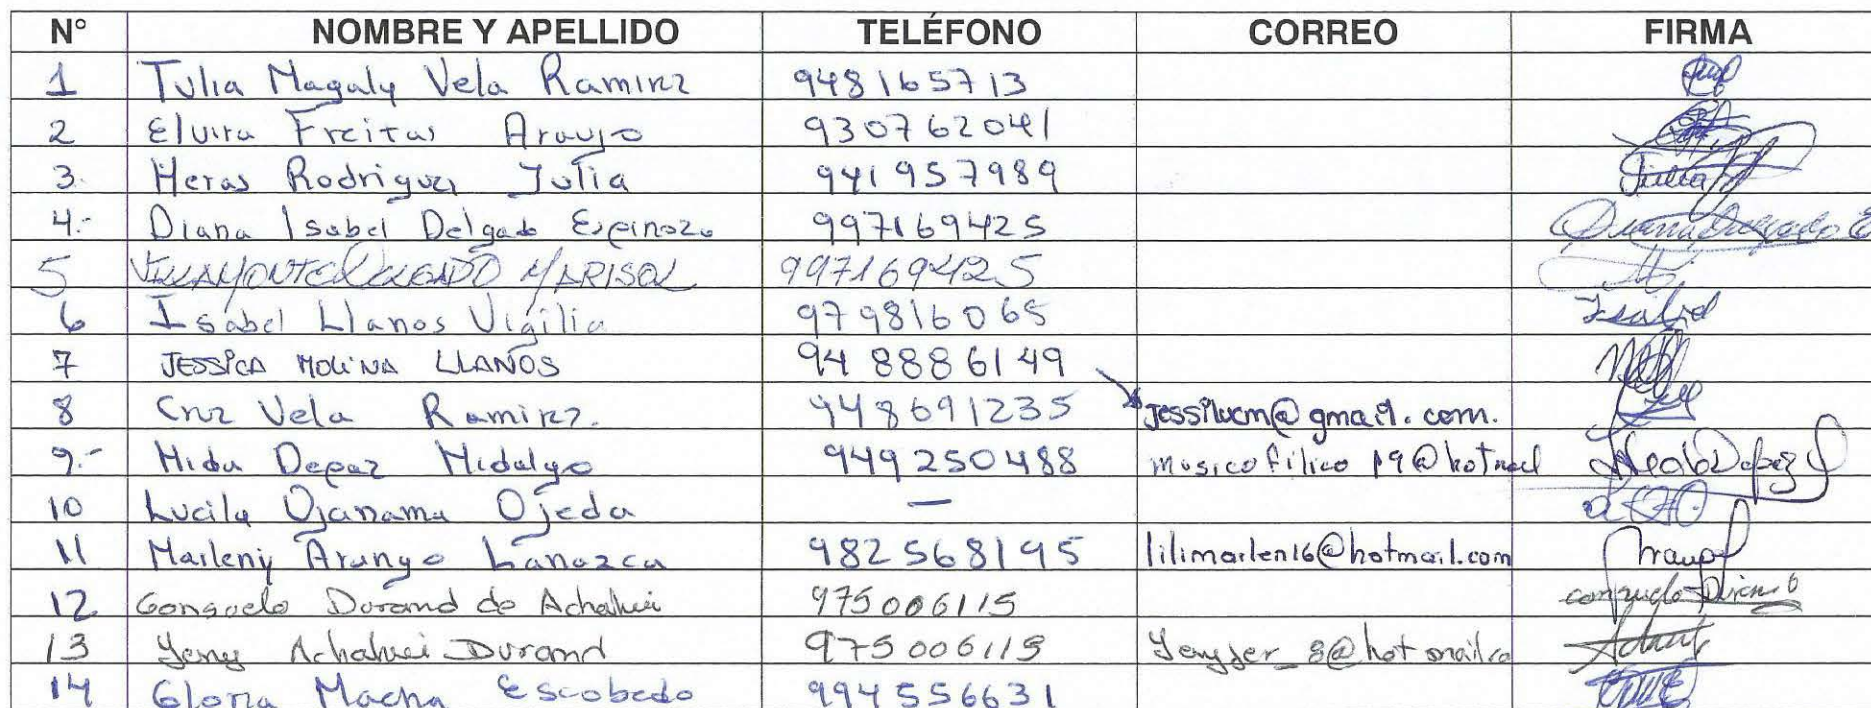 N° NOMBRE Y APELLIDO TELÉFONO CORREO FIRMA
1 Tulia Magaly Vela Ramirez 948165713
2 Elvira Freitas Araujo 930762041
3. Heras Rodriguez Julia 941957989 Julia
4.- Diana Isabel Delgado Espinoza 997169425 Diana Delgado E
5 VILLAMONTE DELGADO MARISOL 997169425
6 Isabel Llanos Vigilia 979816065 Isabel
7 JESSICA MOLINA LLANOS 948886149
8 Cruz Vela Ramirez. 948691235 Jessilucm@gmail.com.
9.- Hida Depaz Hidalgo 949250488 musicofilico19@hotmail
10 Lucila Ojanama Ojeda —
11 Maileny Arango Lanazca 982568195 lilimarlen16@hotmail.com
12 Consuelo Durand de Achahui 975006115
13 Yeny Achahui Durand 975006115
14 Gloria Macha Escobedo 994556631